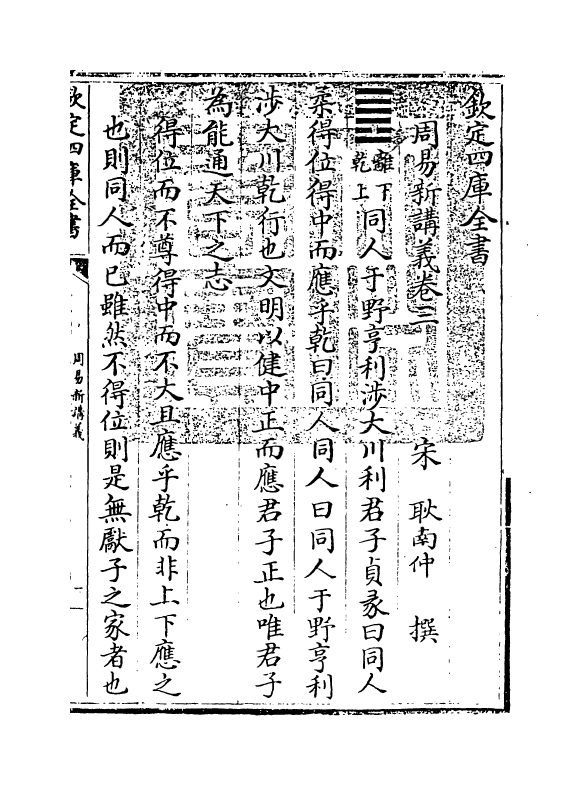 欽定四庫全書
周易新講義卷三
宋 耿南仲 撰
䷌離下乾上同人于野亨利涉大川利君子貞彖曰同人
柔得位得中而應乎乾曰同人同人曰同人于野亨利
涉大川乾行也文明以健中正而應君子正也唯君子
為能通天下之志
得位而不尊得中而不大且應乎乾而非上下應之
也則同人而已雖然不得位則是無獻子之家者也
欽定四庫全書
周易新講義